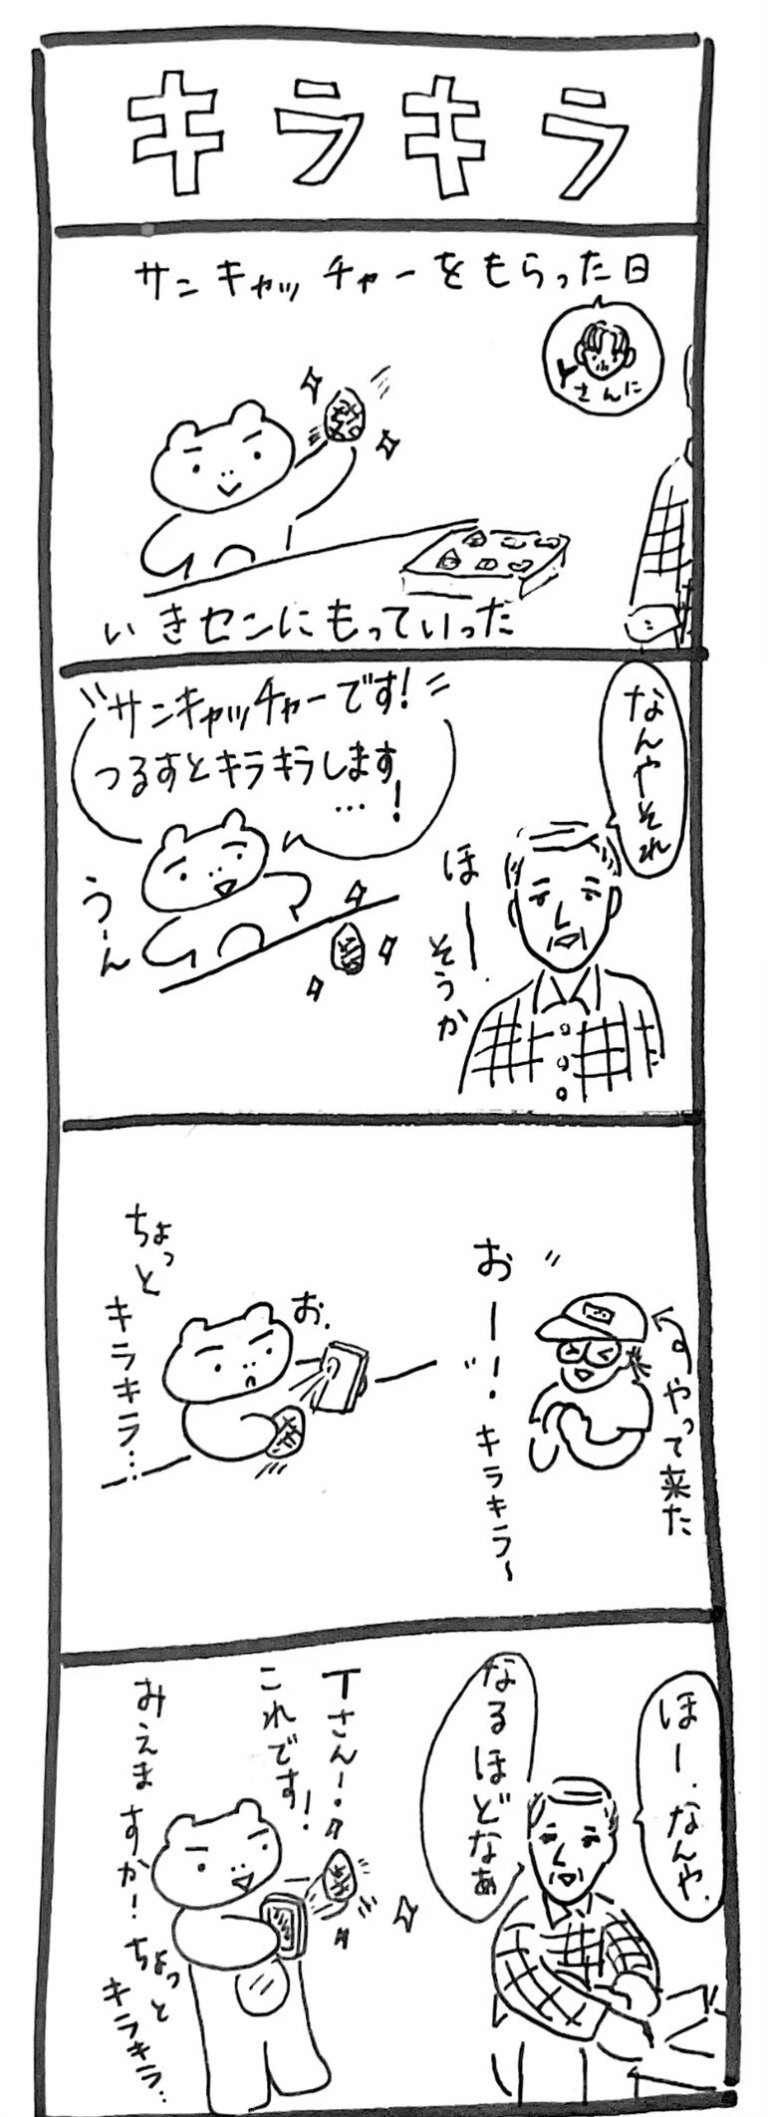 キラキラ
サンキャッチャーをもらった日
Yさんに
いきセンにもっていった
なんやそれ
サンキャッチャーです!
つるすとキラキラします
…!
うーん
ほー
そうか
おー!
キラキラ〜
やって来た
お、
ちょっと
キラキラ…
ほー、なんや、
なるほどなぁ
Tさんー!
これです!
みえますか!
ちょっと
キラキラ…